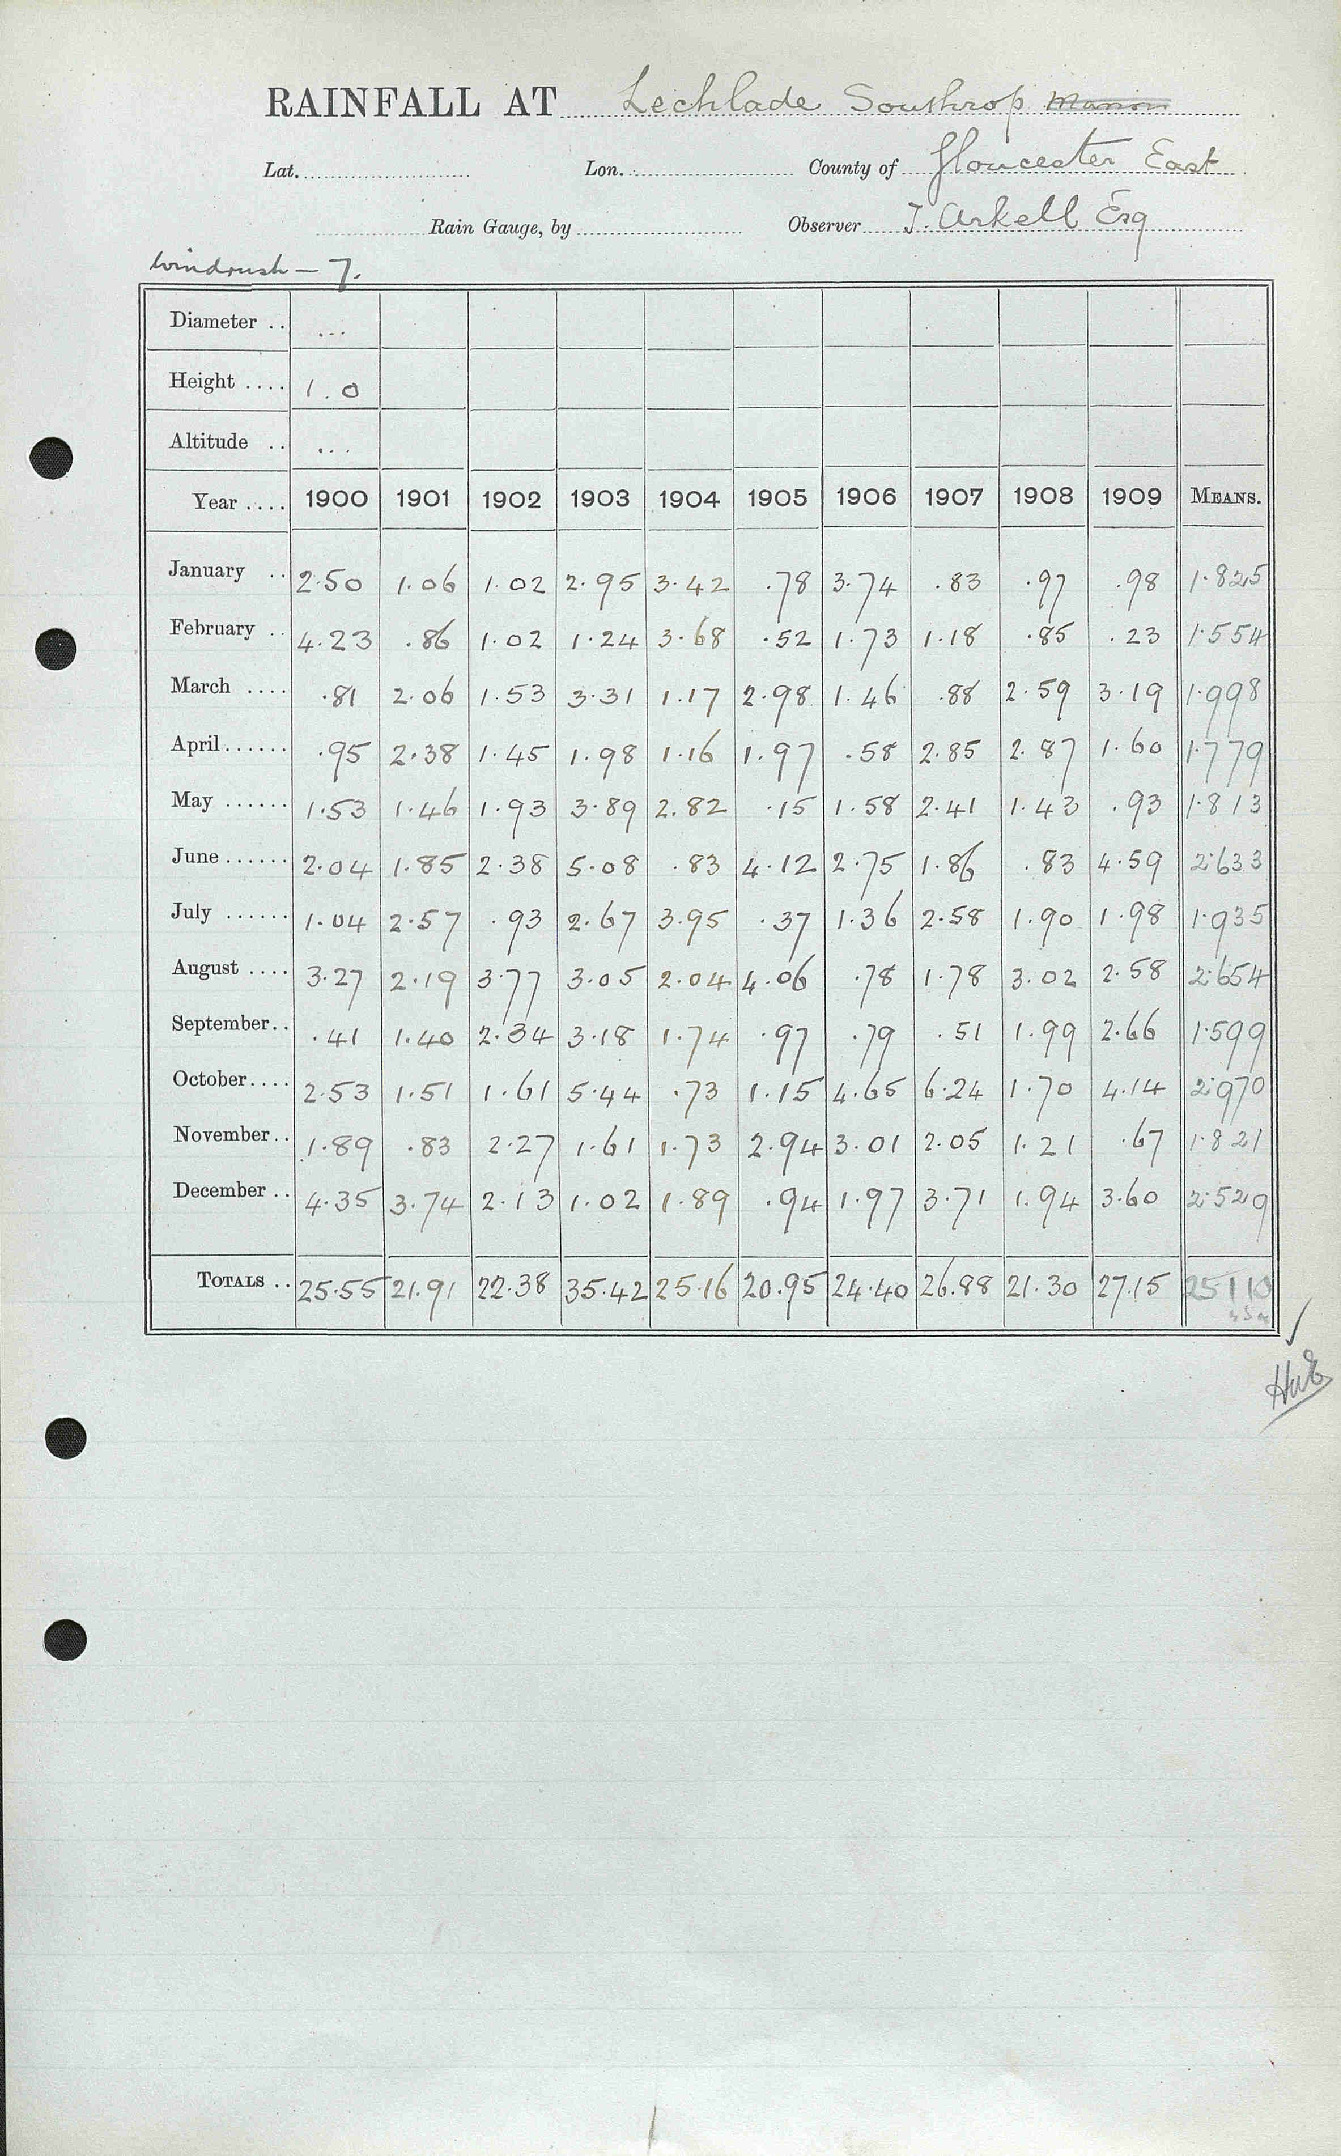 RAINFALL AT Lechlade Southrop Manor
Lat. Lon. County of Gloucester East
Rain Gauge, by Observer J. Arkell Esq
Windrush — 7.
Diameter .. ...
Height .... 1.0
Altitude .. ...
Year .... 1900 1901 1902 1903 1904 1905 1906 1907 1908 1909 MEANS.
January .. 2.50 1.06 1.02 2.95 3.42 .78 3.74 .83 .97 .98 1.825
February .. 4.23 .86 1.02 1.24 3.68 .52 1.73 1.18 .85 .23 1.554
March .... .81 2.06 1.53 3.31 1.17 2.98 1.46 .88 2.59 3.19 1.998
April...... .95 2.38 1.45 1.98 1.16 1.97 .58 2.85 2.87 1.60 1.779
May ...... 1.53 1.46 1.93 3.89 2.82 .15 1.58 2.41 1.43 .93 1.813
June...... 2.04 1.85 2.38 5.08 .83 4.12 2.75 1.86 .83 4.59 2.633
July ...... 1.04 2.57 .93 2.67 3.95 .37 1.36 2.58 1.90 1.98 1.935
August .... 3.27 2.19 3.77 3.05 2.04 4.06 .78 1.78 3.02 2.58 2.654
September.. .41 1.40 2.34 3.18 1.74 .97 .79 .51 1.99 2.66 1.599
October.... 2.53 1.51 1.61 5.44 .73 1.15 4.65 6.24 1.70 4.14 2.970
November.. 1.89 .83 2.27 1.61 1.73 2.94 3.01 2.05 1.21 .67 1.821
December .. 4.35 3.74 2.13 1.02 1.89 .94 1.97 3.71 1.94 3.60 2.529
TOTALS .. 25.55 21.91 22.38 35.42 25.16 20.95 24.40 26.88 21.30 27.15 25110